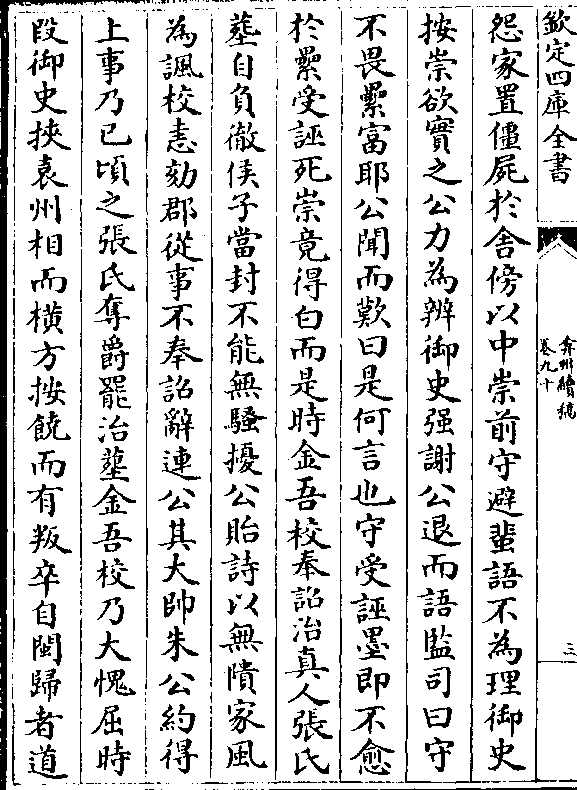 欽定四庫全書
弇州續稿
卷九十
三
怨家置僵屍於舍傍以中崇前守避蜚語不為理御史
按崇欲實之公力為辨御史强謝公退而語監司曰守
不畏纍富耶公聞而歎曰是何言也守受誣墨即不愈
於纍受誣死崇竟得白而是時金吾校奉詔治真人張氏
塟自負徹侯子當封不能無騷擾公貽詩以無隤家風
為諷校恚劾郡從事不奉詔辭連公其大帥朱公約得
上事乃已頃之張氏奪爵罷治塟金吾校乃大愧屈時
段御史挾袁州相而橫方按饒而有叛卒自閩歸者道